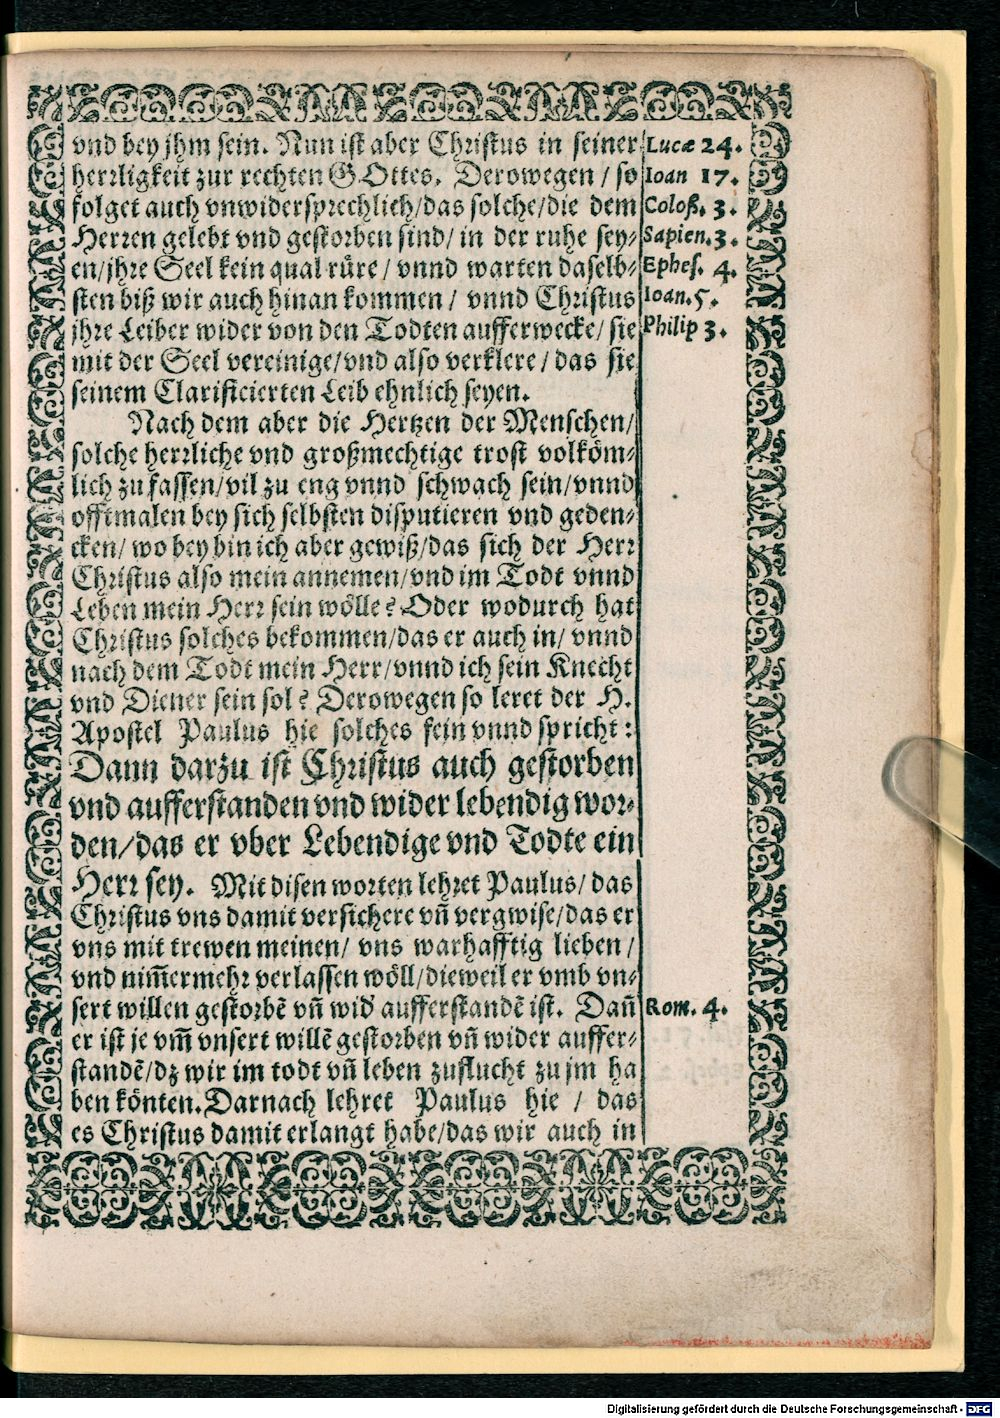 vnd bey jhm sein. Nun ist aber Christus in seiner
herrligkeit zur rechten GOttes. Derowegen / so
folget auch vnwidersprechlich/das solche/die dem
Herren gelebt vnd gestorben sind/ in der ruhe sey-
en/jhre Seel kein qual rüre / vnnd warten daselb-
sten biß wir auch hinan kommen / vnnd Christus
jhre Leiber wider von den Todten aufferwecke/ sie
mit der Seel vereinige/vnd also verklere / das sie
seinem Clarificierten Leib ehnlich seyen.
Nach dem aber die Hertzen der Menschen/
solche herrliche vnd großmechtige trost volköm-
lich zu fassen/vil zu eng vnnd schwach sein/vnnd
offtmalen bey sich selbsten disputieren vnd geden-
cken/ wo bey bin ich aber gewiß/das sich der Herr
Christus also mein annemen/vnd im Todt vnnd
Leben mein Herr sein wölle? Oder wodurch hat
Christus solches bekommen/das er auch in/ vnnd
nach dem Todt mein Herr/vnnd ich sein Knecht
vnd Diener sein sol? Derowegen so leret der H.
Apostel Paulus hie solches fein vnnd spricht:
Dann darzu ist Christus auch gestorben
vnd aufferstanden vnd wider lebendig wor-
den/das er vber Lebendige vnd Todte ein
Herr sey. Mit disen worten lehret Paulus/ das
Christus vns damit versichere vñ vergwise/das er
vns mit trewen meinen/ vns warhafftig lieben/
vnd nim̃ermehr verlassen wöll/dieweil er vmb vn-
sert willen gestorbẽ vñ wid' aufferstandẽ ist. Dañ
er ist je vm̃ vnsert willẽ gestorben vñ wider auffer-
standẽ/dz wir im todt vñ leben zuflucht zu jm ha
ben könten. Darnach lehret Paulus hie / das
es Christus damit erlangt habe/das wir auch in
Lucæ 24.
Ioan 17.
Coloß. 3.
Sapien. 3.
Ephes. 4.
Ioan. 5.
Philip 3.
Rom. 4.
Digitalisierung gefördert durch die Deutsche Forschungsgemeinschaft - DFG